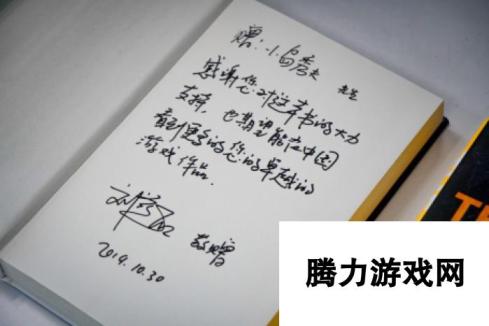 赠：小岛秀夫 先生
感谢您对这本书的大力
支持，也期望能在中国
看到更多的您的卓越的
游戏作品.
敬赠
2019.10.30
腾力游戏网